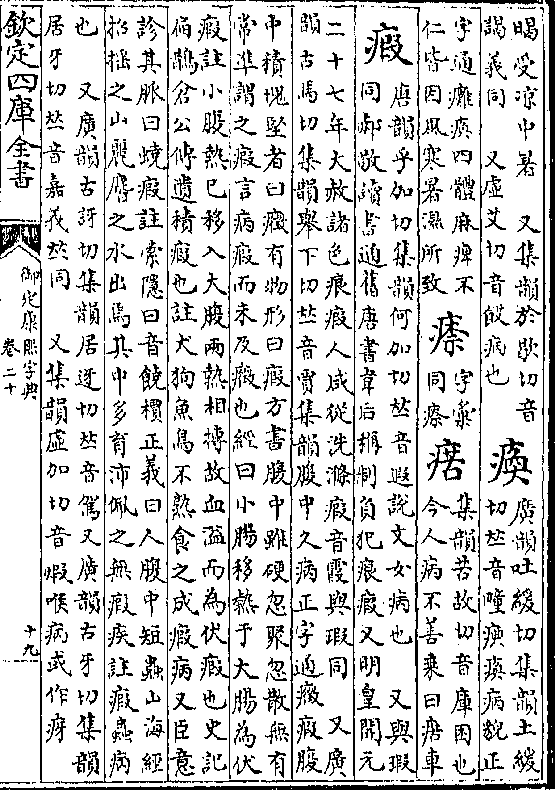 暍受凉中暑　又集韻於歇切音
謁義同　又虛艾切音餀病也　瘓廣韻吐緩切集韻土緩
切𠀤音疃瘓病貌正
字通癱瘓四體麻痺不
仁皆因風寒暑濕所致　瘵字彙
同瘵　㾧集韻苦故切音庫困也
今人病不善乘曰㾧車
瘕唐韻乎加切集韻何加切𠀤音遐說文女病也　又與瑕
同郝敬讀書通舊唐書韋后稱制負犯痕瘕又明皇開元
二十七年大赦諸色痕瘕人咸從洗滌瘕音霞與瑕同　又廣
韻古馬切集韻舉下切𠀤音賈集韻腹中久病正字通癥瘕腹
中積塊堅者曰癥有物形曰瘕方書腹中雖硬忽聚忽散無有
常準謂之瘕言病瘕而未及癥也經曰小腸移熱于大腸為伏
瘕註小腹熱已移入大腹兩熱相搏故血溢而為伏瘕也史記
扁鵲倉公傳遺積瘕也註犬狗魚鳥不熟食之成瘕病又臣意
診其脈曰蟯瘕註索隱曰音饒檟正義曰人腹中短蟲山海經
招搖之山麗𪊨之水出焉其中多育沛佩之無瘕疾註瘕蟲病
也　又廣韻古訝切集韻居迓切𠀤音駕又廣韻古牙切集韻
居牙切𠀤音嘉義𠀤同　又集韻虛加切音煆喉病或作疨
欽定四庫全書
御定康熙字典
卷二十
十九